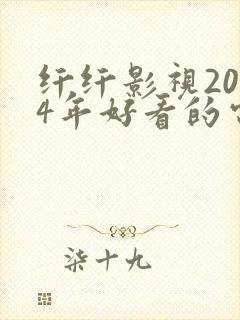 纤纤影視20
4年好看的
柒十九